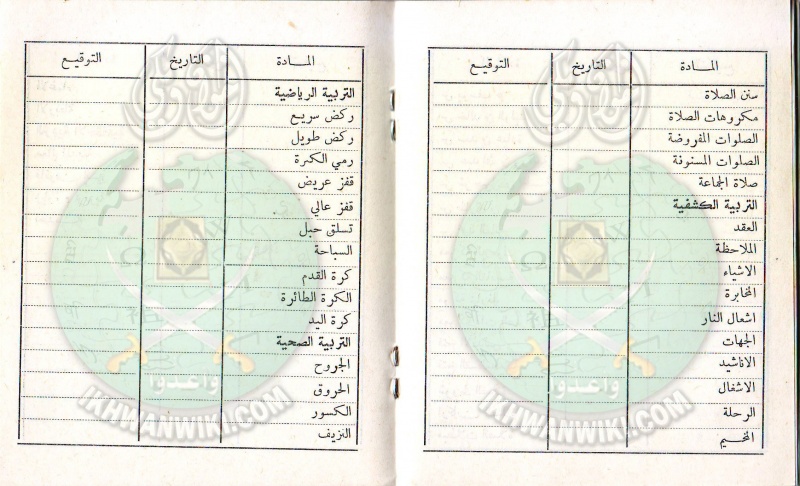 المادة التاريخ التوقيع
سنن الصلاة
مكروهات الصلاة
الصلوات المفروضة
الصلوات المسنونة
صلاة الجماعة
التربية الكشفية
العقد
الملاحظة
الاشياء
المخابرة
اشعال النار
الجهات
الاناشيد
الاشغال
الرحلة
المخيم
المادة التاريخ التوقيع
التربية الرياضية
ركض سريع
ركض طويل
رمي الكرة
قفز عريض
قفز عالي
تسلق حبل
السباحة
كرة القدم
الكرة الطائرة
كرة اليد
التربية الصحية
الجروح
الحروق
الكسور
النزيف
واعدوا
IKHWANWIKI.COM
واعدوا
IKHWANWIKI.COM